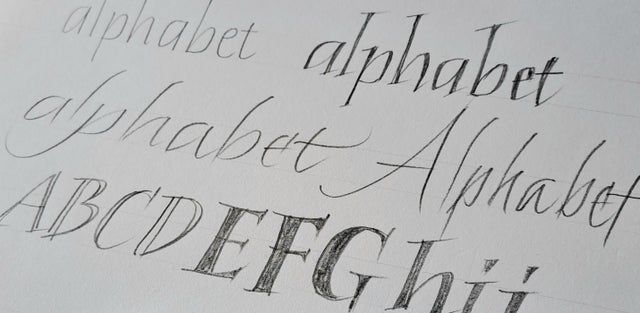 alphabet alphabet
alphabet Alphabet
ABCDEFGhij